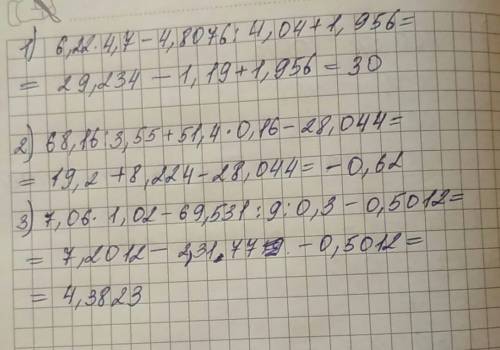 1) 6,22·4,7-4,8076:4,04+1,956=
= 29,234 - 1,19+1,956 = 30
2) 68,16:3,55+51,4·0,16-28,044=
= 19,2 +8,224-28,044= -0,62
3) 7,06·1,02-69,531:9:0,3-0,5012=
= 7,2012- - 0,5012=
= 4,3823